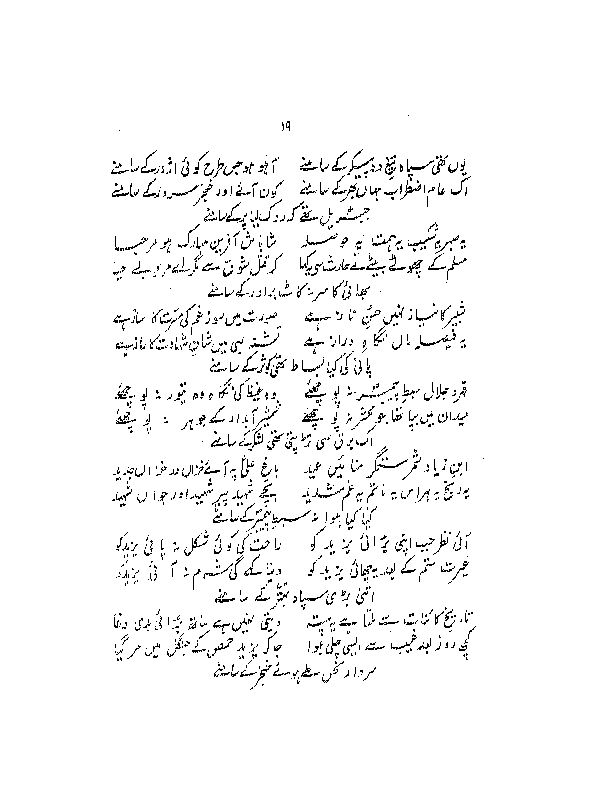 ۱۹
یوں تھی سپاہ تیغ دو پیکر کے سامنے آہو ہو جس طرح کوئی اژدر کے سامنے
اک عام اضطراب جہاں بھر کے سامنے کون آئے اور خنجر سرور کے سامنے
جبریل تھے کہ رک پر کے سامنے
یہ صبر یہ شکیب یہ ہمت یہ حوصلہ شاباش آفرین مبارک ہو مرحبا
مسلم کے چھوٹے بیٹے نے حارث سے کہا کر قتل شوق سے مگر اے مرد بے حیا
بھائی کا سر نہ کاٹ برادر کے سامنے
شبیر کا نیاز نہیں حسن ناز ہے صورت میں سوز غم کی مسرت کا ساز ہے
یہ فیصلہ مال نگاہ دراز ہے تشنہ لبی میں شان شہادت کا راز ہے
پانی کی کیا بساط تھی کوثر کے سامنے
قہر و جلال سبط پیمبر نہ پوچھئے وہ غیظ کی نگاہ وہ تیور نہ پوچھئے
میدان میں بپا تھا جو محشر نہ پوچھئے شمشیر آبدار کے جوہر نہ پوچھئے
اک برق سی تڑپتی تھی لشکر کے سامنے
ابن زیاد شمر ستمگر منائیں عید باغ علی پہ آئے خزاں در خزاں جدید
یہ رنج یہ ہراس یہ ماتم یہ غم شدید بچے شہید پیر شہید اور جواں شہید
کیا کیا ہوا نہ سبط پیمبر کے سامنے
آئی نظر جب اپنی برائی یزید کو راحت کی کوئی شکل نہ پائی یزید کو
عبرت ستم کے بعد یہ بھائی یزید کو دنیا کے آگے شرم نہ آئی یزید کو
اتنی بڑی سپاہ بہتر کے سامنے
تاریخ کائنات سے ملتا ہے یہ پتہ دیتی نہیں ہے ساتھ برائی بدی دغا
کچھ روز بعد غیب سے ایسی چلی ہوا جا کر یزید حمص کے جنگل میں مر گیا
سردار نحس ہوئے خنجر کے سامنے